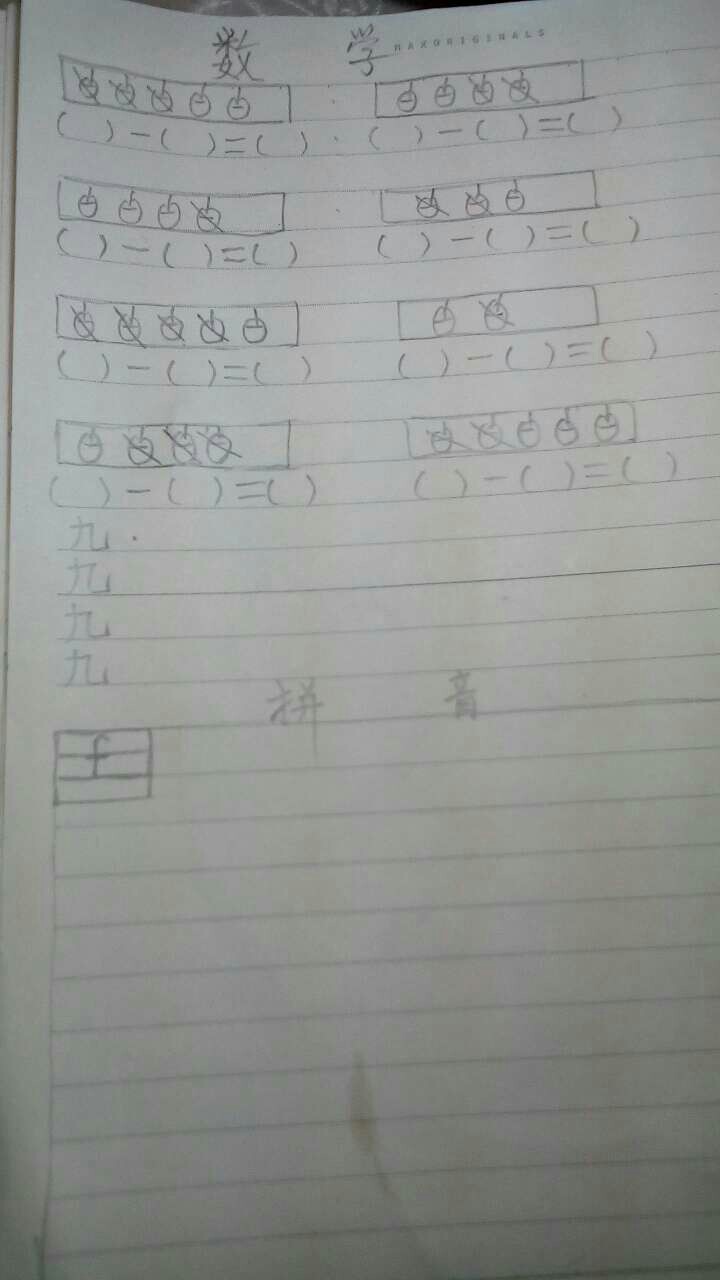 数 学 MAXORIGINALS
( ) - ( ) = ( ) · ( ) - ( ) = ( )
( ) - ( ) = ( ) ( ) - ( ) = ( )
( ) - ( ) = ( ) ( ) - ( ) = ( )
( ) - ( ) = ( ) ( ) - ( ) = ( )
九 ·
九
九
九
拼 音
f